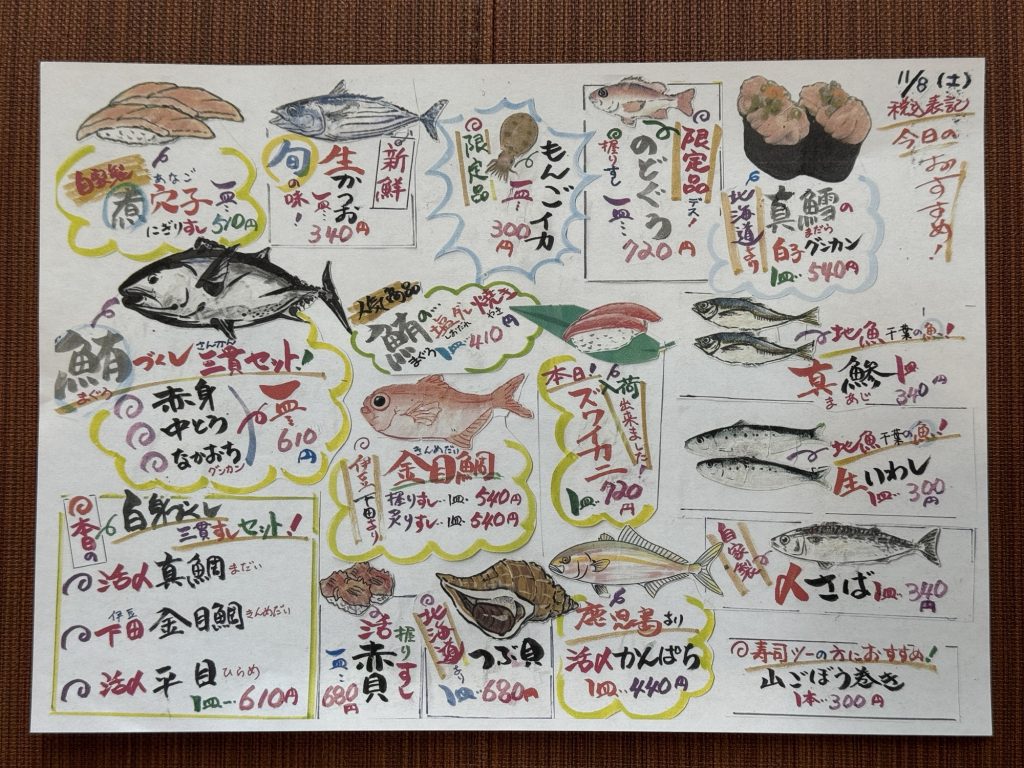 11/8(土)
税込表記
今日の
おすすめ!
自家製
煮
あなご
穴子
にぎりずし
一皿
510円
新鮮
生かつお
旬の味!
一皿…
340円
限定品
もんごイカ
一皿…
300円
限定品デス!
のどぐろ
握りすし
一皿…
720円
北海道より
真鱈の
まだら
白子グンカン
1皿…540円
鮪づくし三貫セット!
まぐろ
さんかん
赤身
中とろ
なかおち
グンカン
一皿…
610円
人気商品
鮪の塩ダレ焼き
まぐろ
しおだれ
やき
1皿…410円
本日!
入荷出来ました!
ズワイガニ
1皿…720円
地魚千葉の魚!
真鯵
まあじ
1皿
340円
地魚千葉の魚!
生いわし
1皿…300円
きんめだい
金目鯛
伊豆下田より
握りすし…1皿…540円
炙りすし…1皿…540円
本日の
白身づくし
三貫すしセット!
活〆真鯛まだい
伊豆
下田金目鯛きんめだい
活〆平目ひらめ
1皿…610円
活赤貝
握りすし
一皿…
680円
北海道より
つぶ貝
1皿…680円
鹿児島より
活〆かんぱち
1皿…440円
自家製
〆さば
1皿…340円
寿司ツーの方におすすめ!
山ごぼう巻き
1本…300円